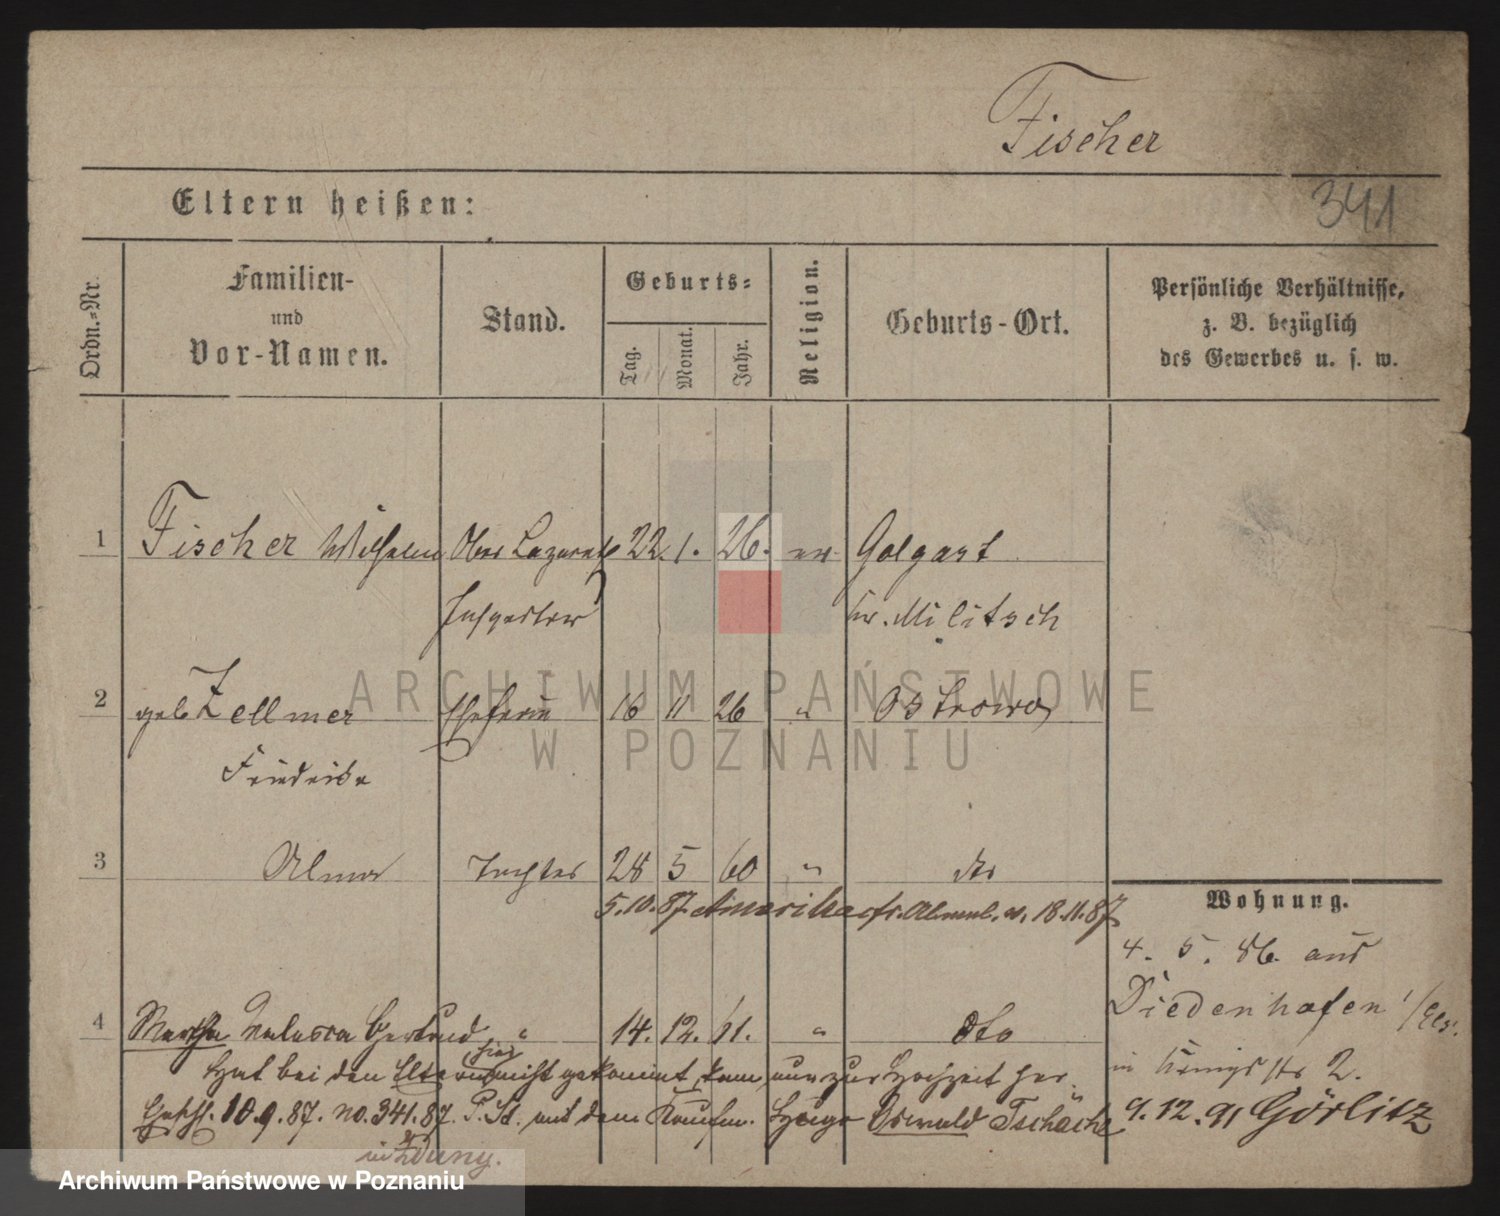 Fischer
Eltern heißen:
341
Ordn.-Nr.
Familien-
und
Vor-Namen.
Stand.
Geburts-
Tag.
Monat.
Jahr.
Religion.
Geburts-Ort.
Persönliche Verhältnisse,
z. B. bezüglich
des Gewerbes u. s. w.
1 Fischer Wilhelm Ober Lazareth 22. 1. 26. ev. Golgart
Inspector Kr. Militsch
2 geb Zellmer Ehefrau 16 11 26 " Ostrowo
Friedrike
3 Alma Tochter 28 5 60 " dto
5.10.87 Amerika 18.11.87
Wohnung.
4. 5. 86. aus
Diedenhofen
4 Martha Gertrud " 14. 12. 61. " dto
Hat bei den Eltern hier nicht gekommt, kam nur zur Hochzeit her.
in Königstr 2.
10.9.87. no. 341.87. P. St. mit dem Kaufm. Hugo Oswald Tschäche
9.12.91 Görlitz
in Zduny.
ARCHIWUM PAŃSTWOWE
W POZNANIU
Archiwum Państwowe w Poznaniu